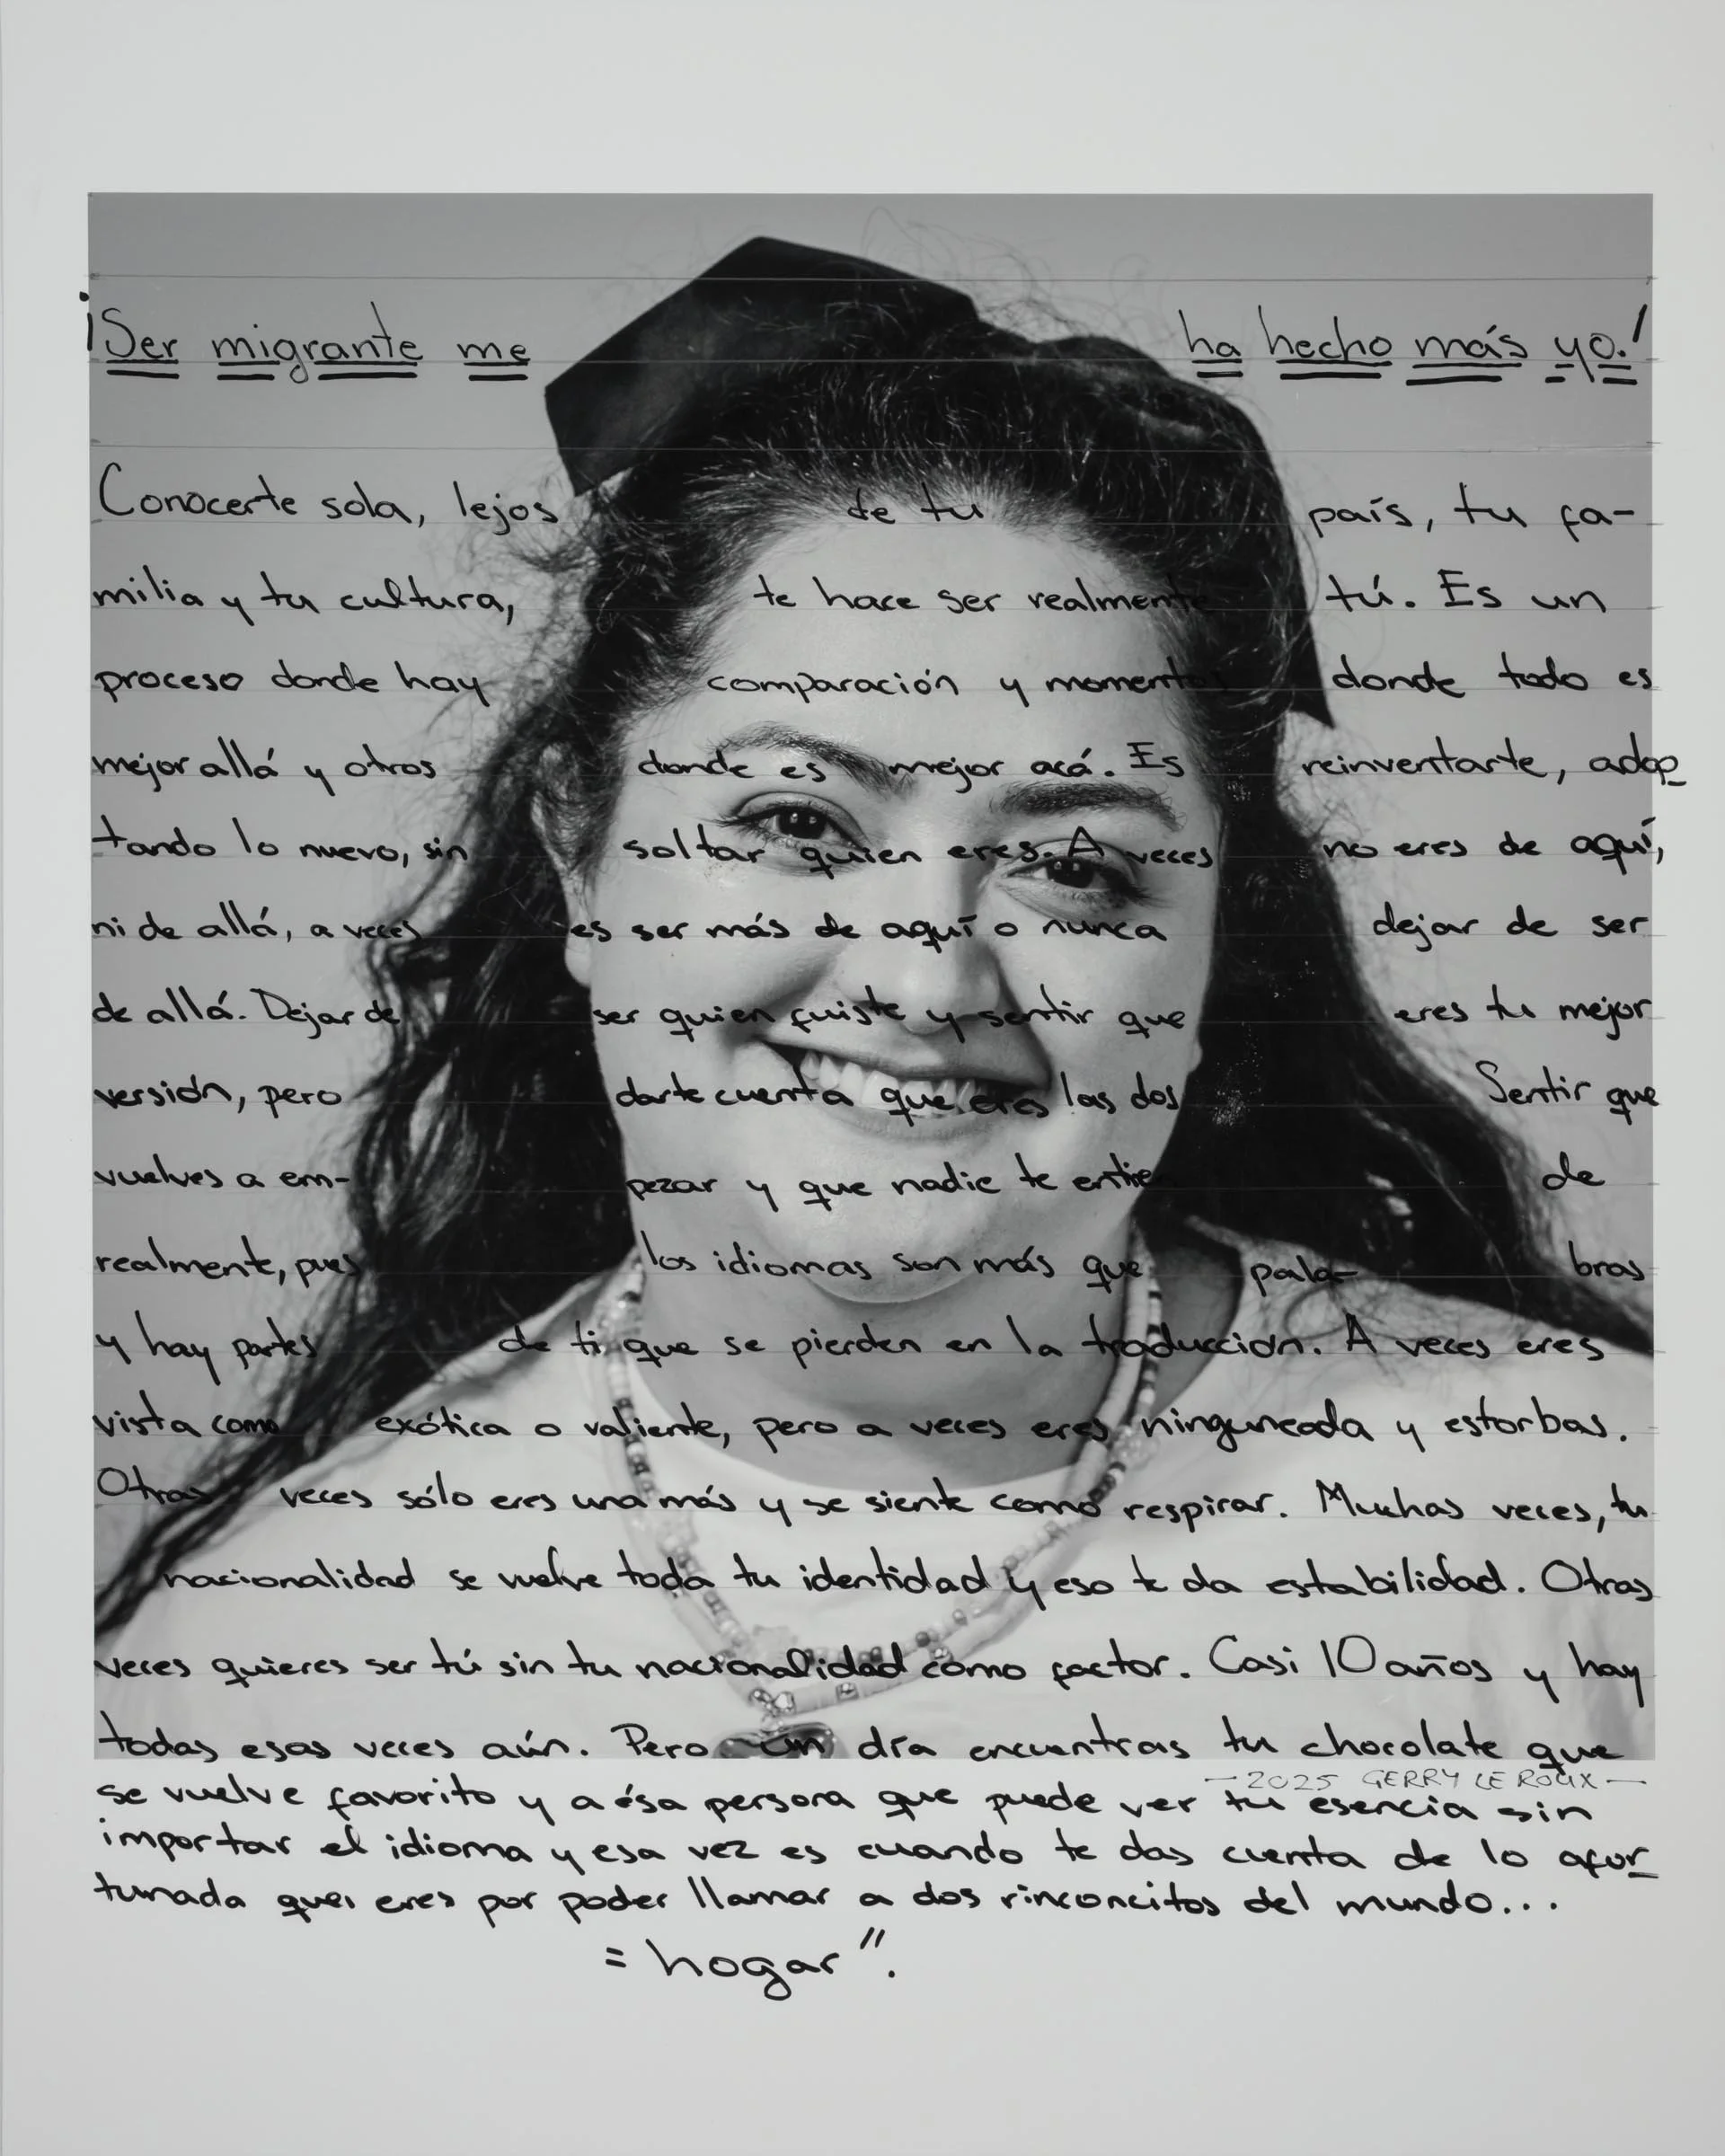 ¡Ser migrante me ha hecho más yo!
Conocerte sola, lejos de tu país, tu fa-
milia y tu cultura, te hace ser realmente tú. Es un
proceso donde hay comparación y momentos donde todo es
mejor allá y otros donde es mejor acá. Es reinventarte, adop-
tando lo nuevo, sin soltar quien eres. A veces no eres de aquí,
ni de allá, a veces es ser más de aquí o nunca dejar de ser
de allá. Dejar de ser quien fuiste y sentir que eres tu mejor
versión, pero darte cuenta que eres las dos Sentir que
vuelves a em- pezar y que nadie te entie de
realmente, pues los idiomas son más que pala- bras
y hay partes de ti que se pierden en la traducción. A veces eres
vista como exótica o valiente, pero a veces eres ninguneada y estorbas.
Otras veces sólo eres una más y se siente como respirar. Muchas veces, tu
nacionalidad se vuelve toda tu identidad y eso te da estabilidad. Otras
veces quieres ser tú sin tu nacionalidad como factor. Casi 10 años y hay
todas esas veces aún. Pero un día encuentras tu chocolate que
— 2025 GERRY LE ROUX —
se vuelve favorito y a ésa persona que puede ver tu esencia sin
importar el idioma y esa vez es cuando te das cuenta de lo afor-
tunada que eres por poder llamar a dos rinconcitos del mundo...
= hogar".